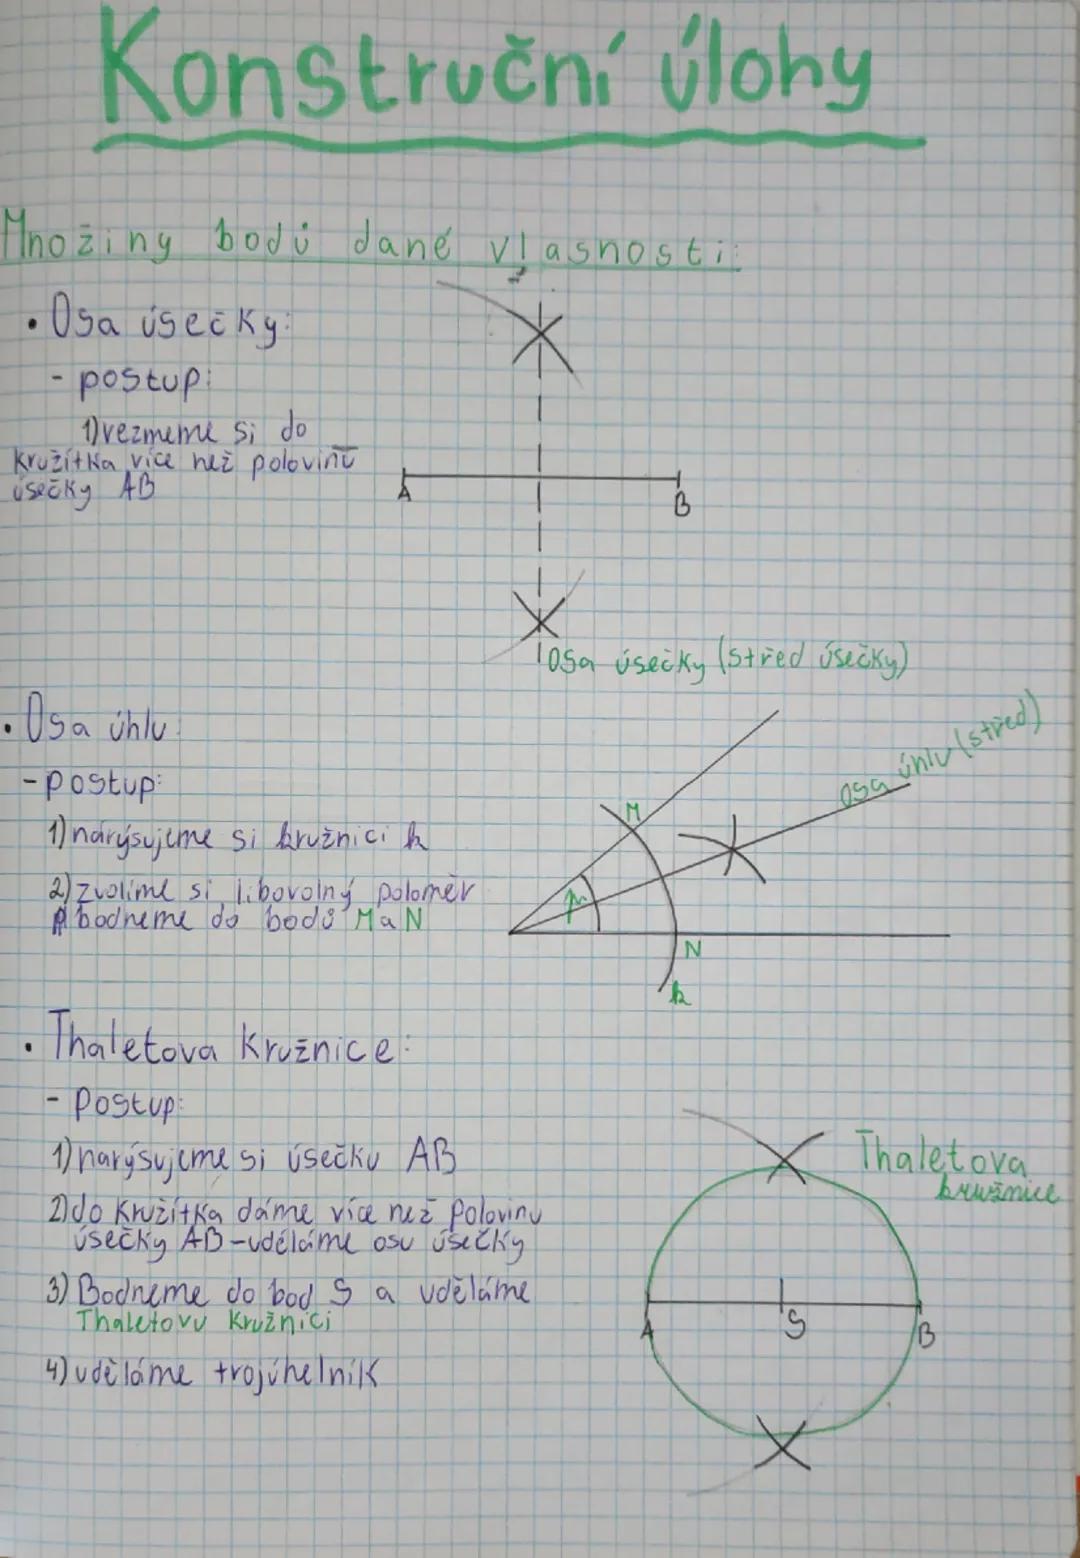 Konstruční úlohy
Množiny bodů dané vlasnosti:
• Osa úsečky:
- postup:
1) vezmeme si do
kružítka více než polovinu
úsečky AB
A
B
Osa úsečky (střed úsečky)
• Osa úhlu
- postup:
1) narýsujeme si kružnici k
2) zvolíme si libovolný poloměr
A bodneme do bodů M a N
M
osa úhlu (střed)
N
k
• Thaletova Kružnice:
- Postup:
1) narýsujeme si úsečku AB
2) do kružítka dáme více než polovinu
úsečky AB - uděláme osu úsečky
3) Bodneme do bod S a uděláme
Thaletovu Kružnici
4) uděláme trojúhelník
Thaletova
kružnice
A
S
B